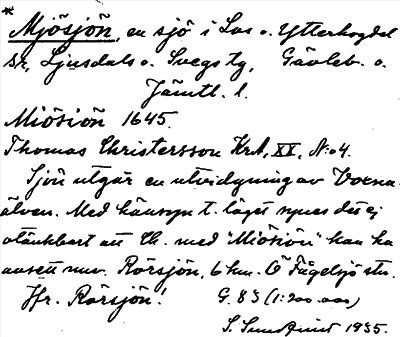 *
Mjösjön, en sjö i Los o. Ytterhogdal
sr, Ljusdals o. Svegs tg, Gävleb. o.
Jämtl. l.
Miösiön 1645.
Thomas Christersson Krt, XX, No 4.
Sjön utgår en utvidgning av Voxna-
älven. Med hänsyn t. läget synes det ej
otänkbart att Ch. med "Miösiön" kan ha
avsett nuv. Rörsjön, 6 km. Ö Fågelsjö stn.
Jfr. Rörsjön! G. 83 (1:200.000)
S. Sundqvist 1935.